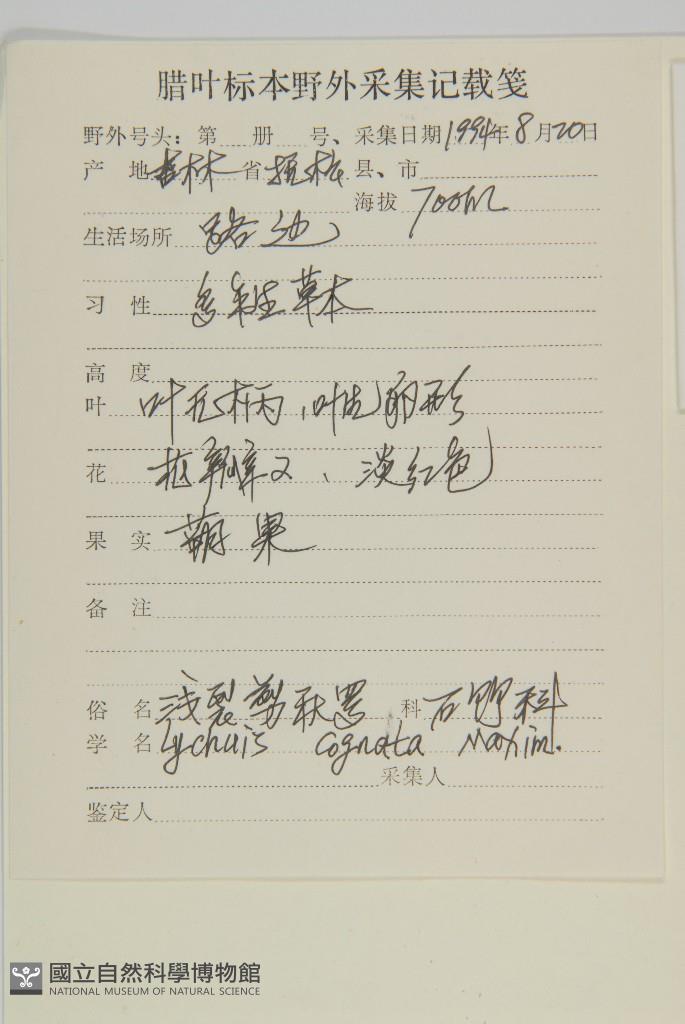 腊叶标本野外采集记载笺
野外号头：第 册 号、采集日期1994年8月20日
产 地 吉林 省 县、市
海拔 700m
生活场所 路边
习 性 多年生草本
高 度
叶 叶无柄，叶片卵形
花 花瓣 、淡红色
果 实 蒴果
备 注
俗 名 浅裂剪秋罗 科 石竹科
学 名 Lychnis cognata Maxim.
采集人
鉴定人
國立自然科學博物館
NATIONAL MUSEUM OF NATURAL SCIENCE